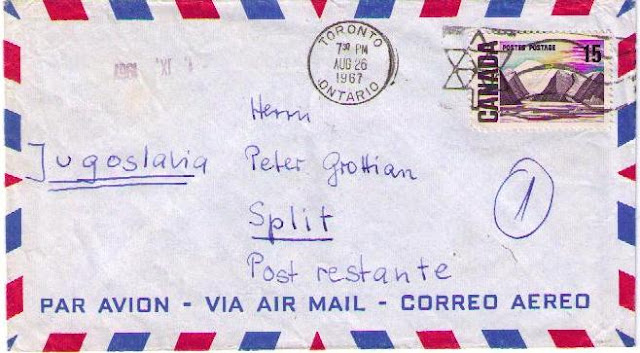 TORONTO
7 30 PM
AUG 26
1967
ONTARIO
POSTES POSTAGE
15
CANADA
Herrn
Jugoslavia
Peter Grottian
Split
Post restante
1
PAR AVION - VIA AIR MAIL - CORREO AEREO